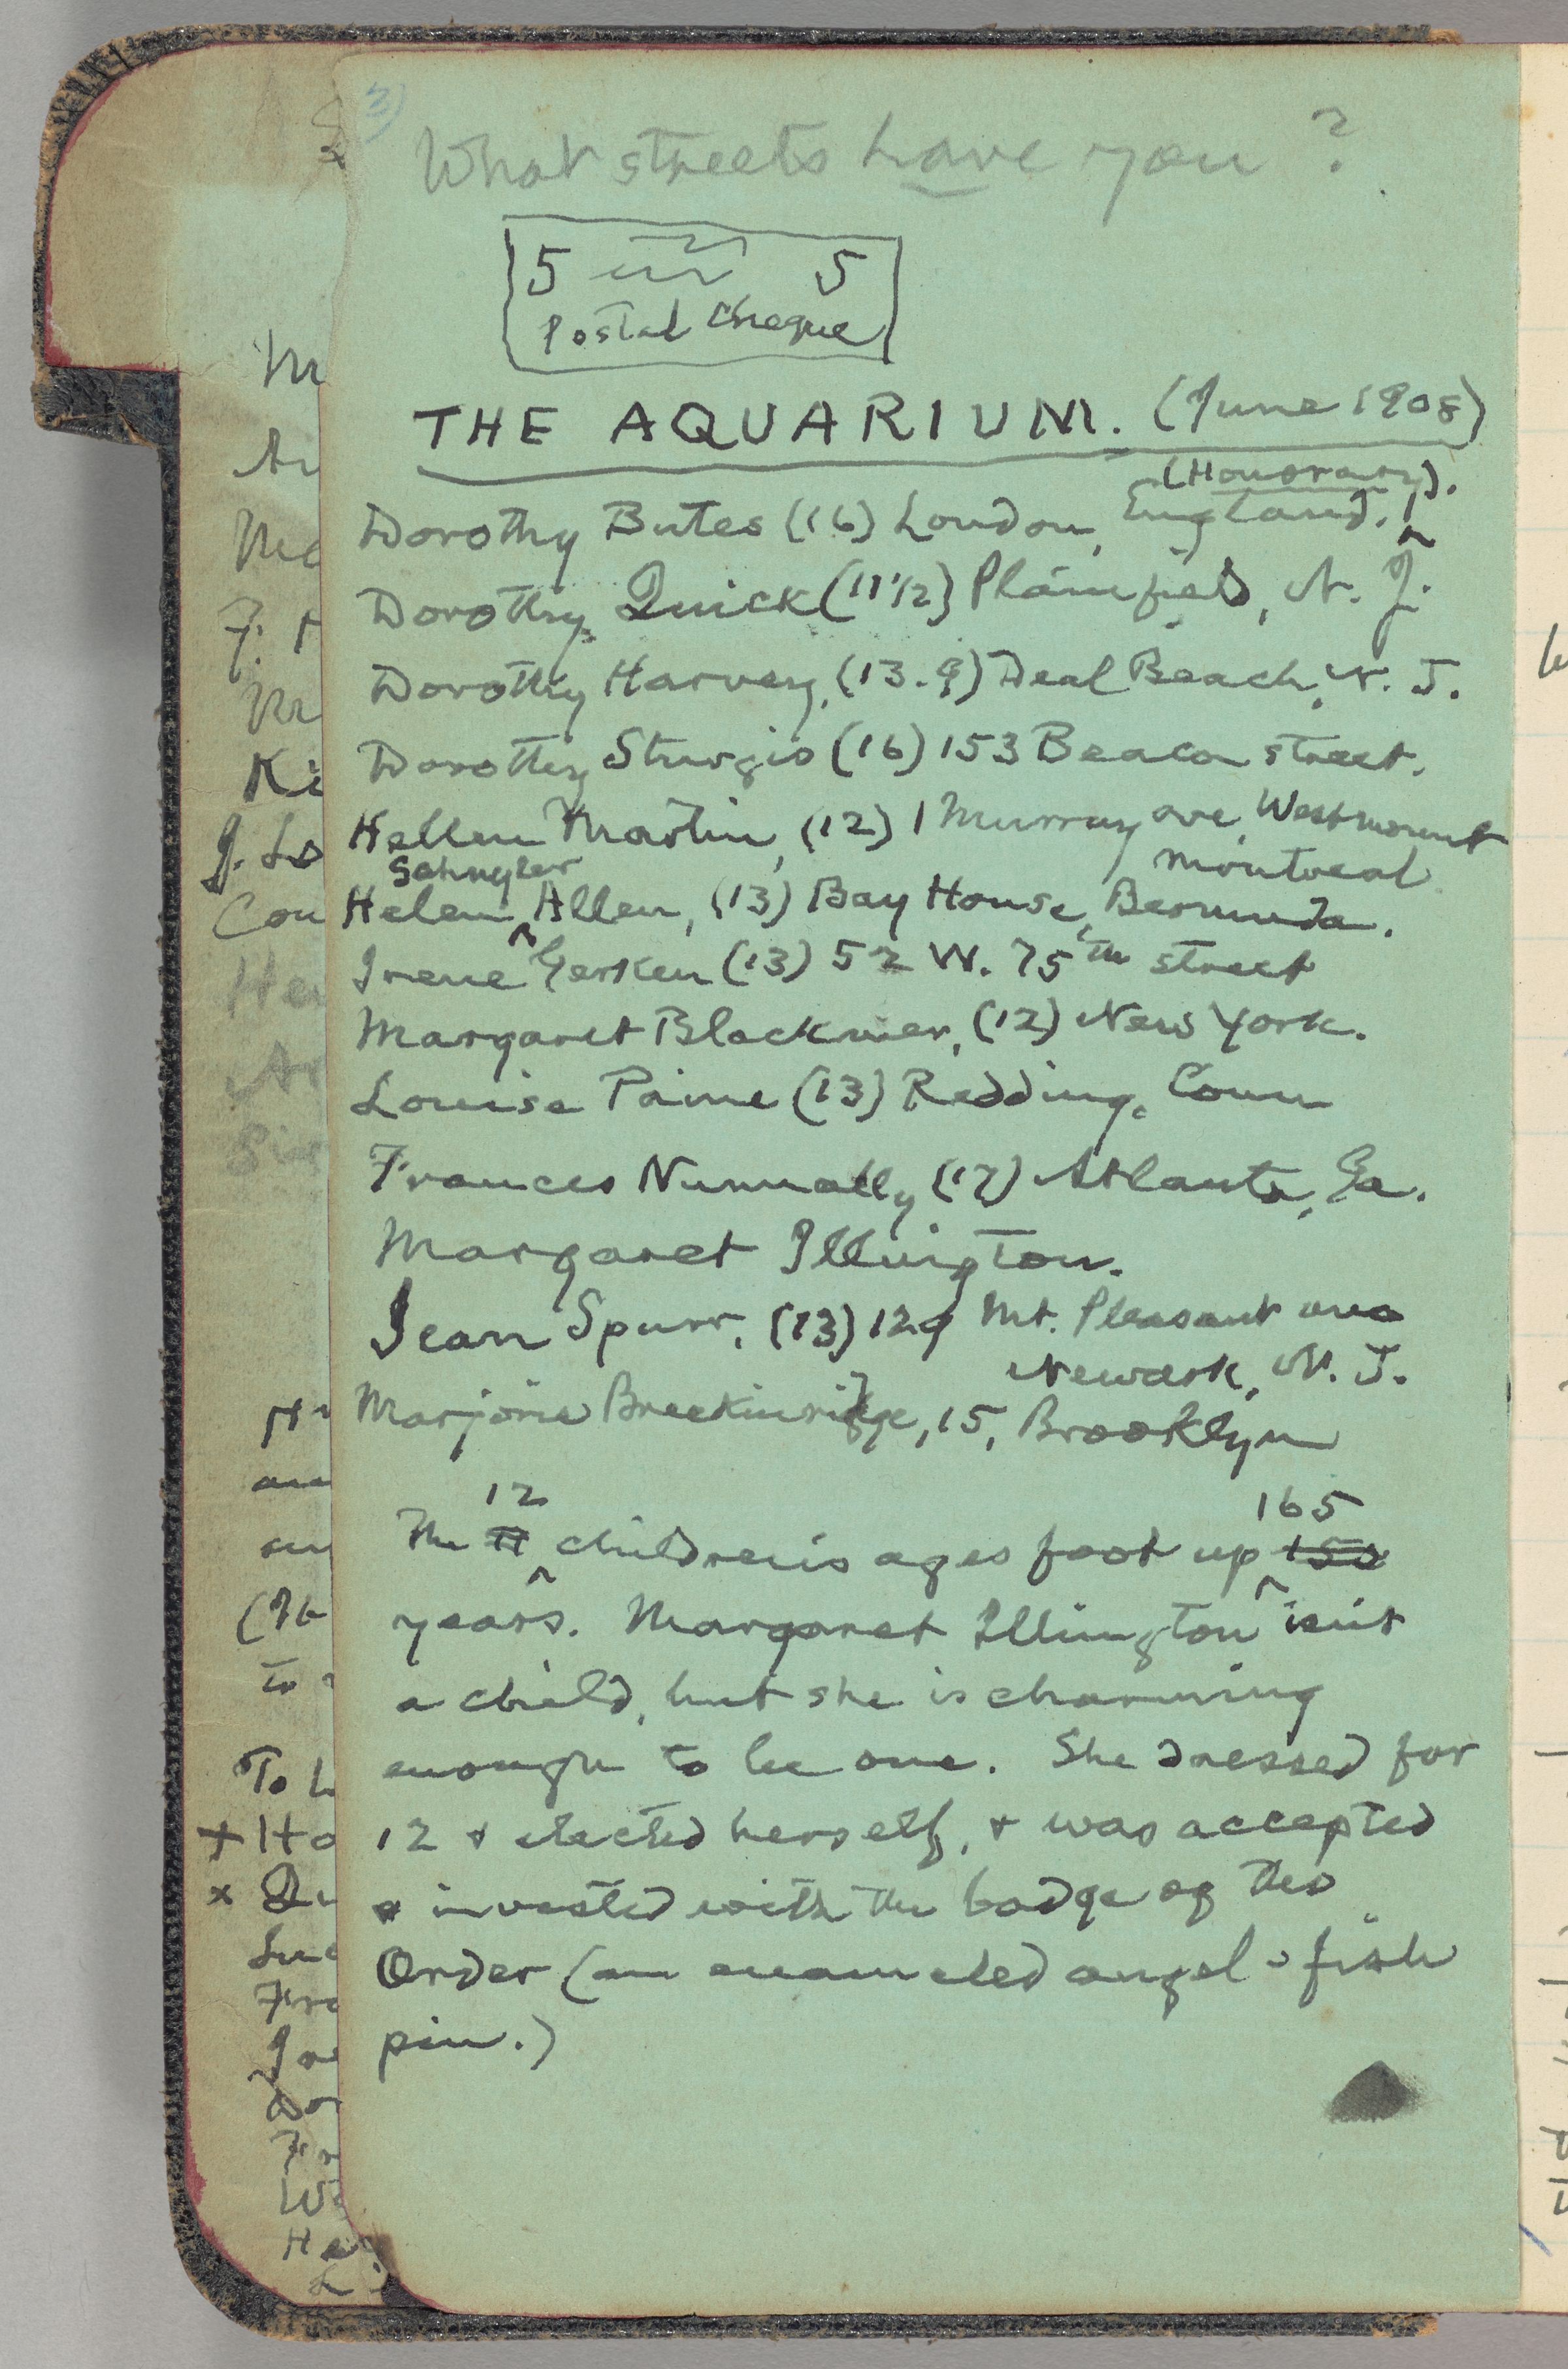 3)
What streets have you ?
5 5
Postal Cheque
THE AQUARIUM. (June 1908)
(Honorary).
Dorothy Butes (16) London, England.
Dorothy Quick (11 1/2) Plainfield, N. J.
Dorothy Harvey, (13.9) Deal Beach, N. J.
Dorothy Sturgis (16) 153 Beacon street.
Hellen Martin, (12) 1 Murray ave, Westmount
Montreal
Schuyler
Helen Allen, (13) Bay House, Bermuda.
Irene Gerken (13) 52 W. 75th street
Margaret Blackmer, (12) New York.
Louise Paine (13) Redding, Conn
Frances Nunnally (17) Atlanta, Ga.
Margaret Illington.
Jean Spurr, (13) 129 Mt. Pleasant ave
Newark, N. J.
Marjorie Breckinridge, 15, Brooklyn
12 165
The 11 children's ages foot up 153
years. Margaret Illington isn't
a child, but she is charming
enough to be one. She dressed for
12 & elected herself, & was accepted
& invested with the badge of the
Order (an enameled angel-fish
pin.)